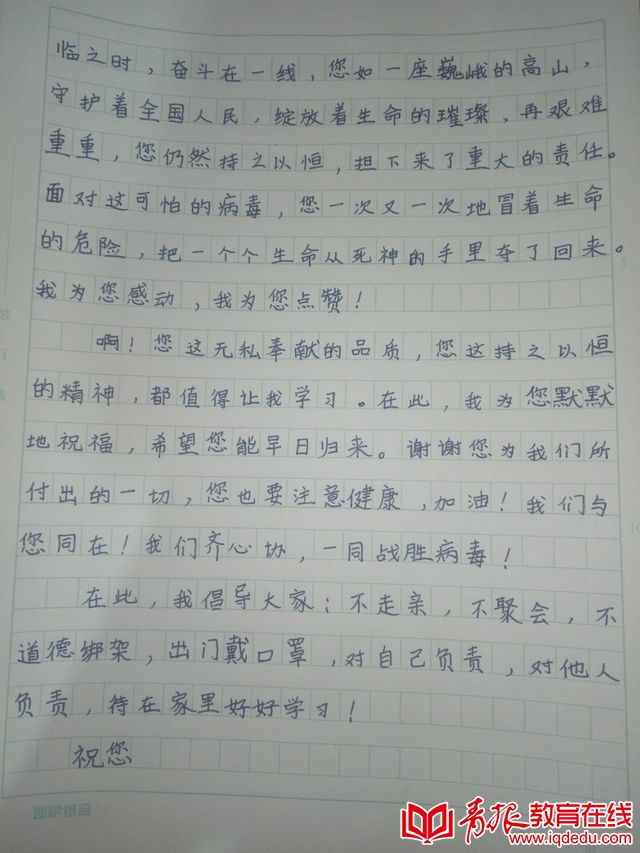 临之时，奋斗在一线，您如一座巍峨的高山，
守护着全国人民，绽放着生命的璀璨、再艰难
重重，您仍然持之以恒，担下来了重大的责任。
面对这可怕的病毒，您一次又一次地冒着生命
的危险，把一个个生命从死神的手里夺了回来。
我为您感动，我为您点赞！
啊！您这无私奉献的品质，您这持之以恒
的精神，都值得让我学习。在此，我为您默默
地祝福，希望您能早日归来。谢谢您为我们所
付出的一切，您也要注意健康，加油！我们与
您同在！我们齐心协，一同战胜病毒！
在此，我倡导大家：不走亲，不聚会，不
道德绑架，出门戴口罩，对自己负责，对他人
负责，待在家里好好学习！
祝您
凯萨纸品
青报教育在线
www.iqdedu.com